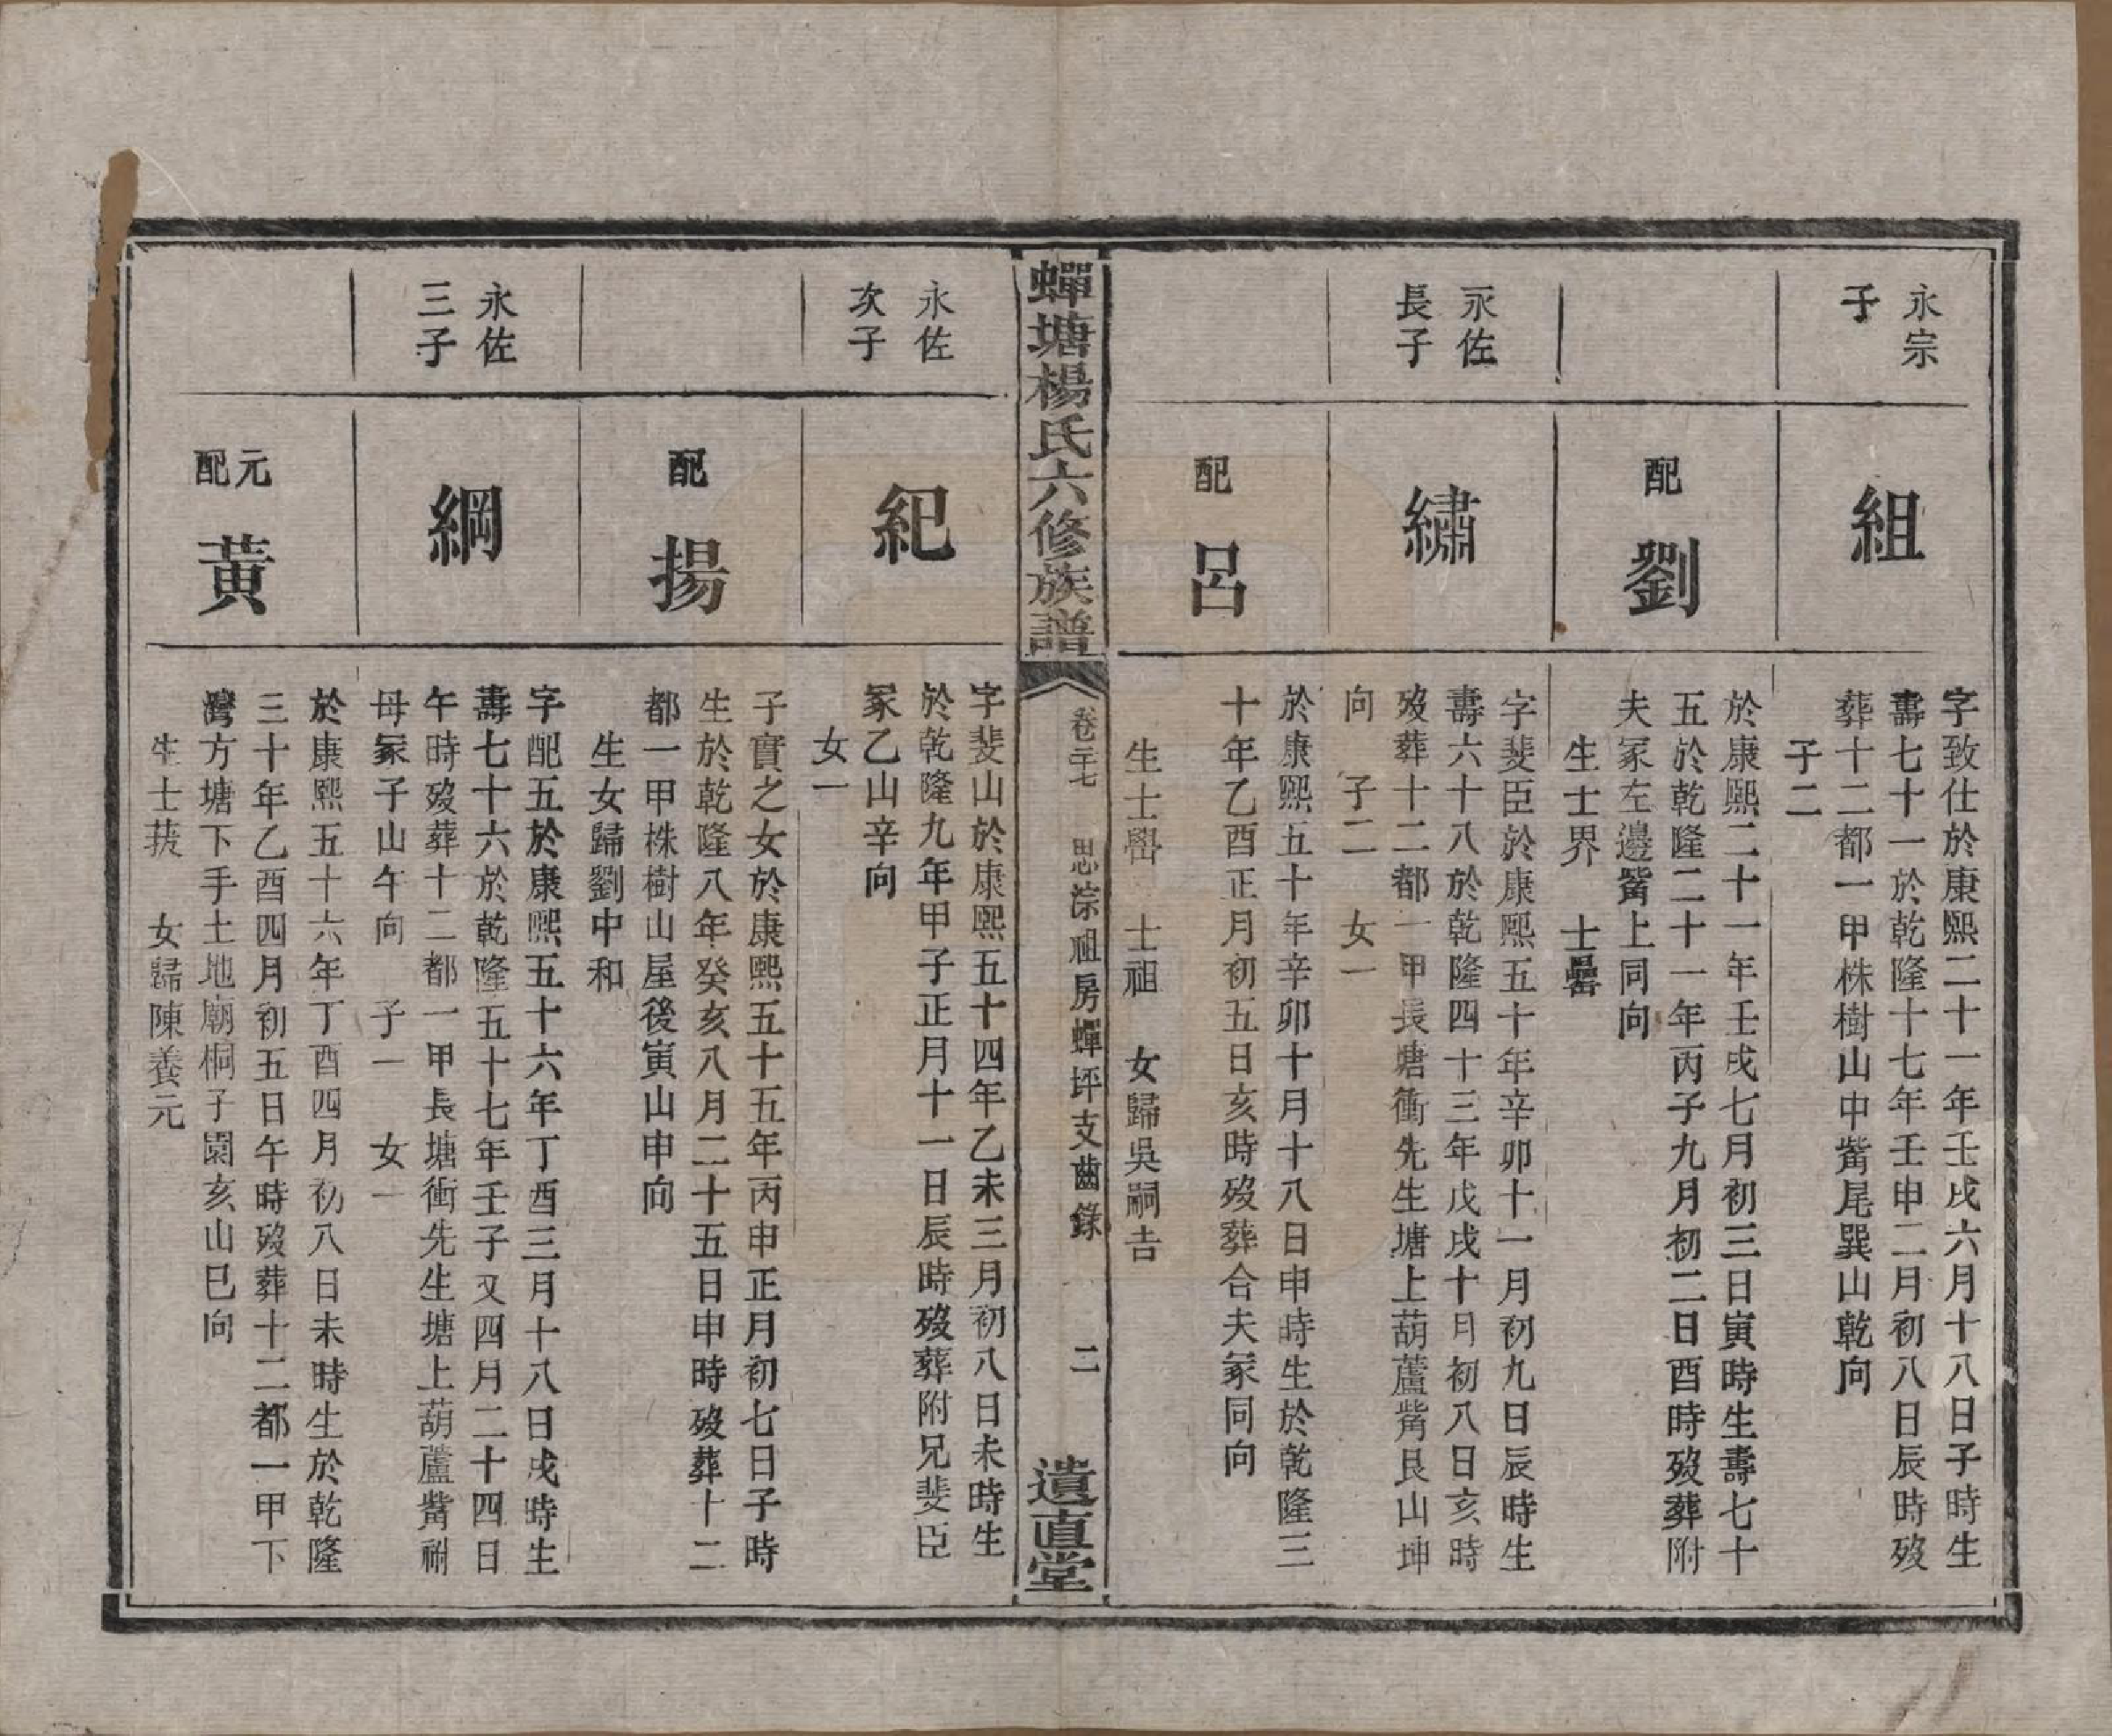 永宗
子
組
字致仕於康熙二十一年壬戌六月十八日子時生
壽七十一於乾隆十七年壬申二月初八日辰時歿
葬十二都一甲株樹山中觜尾巽山乾向
子二
配
劉
於康熙二十一年壬戌七月初三日寅時生壽七十
五於乾隆二十一年丙子九月初二日酉時歿葬附
夫冢左邊觜上同向
生士界　士
永佐
長子
繡
字斐臣於康熙五十年辛卯十一月初九日辰時生
壽六十八於乾隆四十三年戊戌十月初八日亥時
歿葬十二都一甲長塘衝先生塘上葫蘆觜艮山坤
向　子二　女一
配
呂
於康熙五十年辛卯十月十八日申時生於乾隆三
十年乙酉正月初五日亥時歿葬合夫冢同向
生士礐　士祖　女歸吳嗣吉
蟬塘楊氏六修族譜
卷二十七　思淙祖房蟬坪支齒錄　二
遺直堂
永佐
次子
紀
字斐山於康熙五十四年乙未三月初八日未時生
於乾隆九年甲子正月十一日辰時歿葬附兄斐臣
冢乙山辛向
女一
配
揚
子實之女於康熙五十五年丙申正月初七日子時
生於乾隆八年癸亥八月二十五日申時歿葬十二
都一甲株樹山屋後寅山申向
生女歸劉中和
永佐
三子
綱
字配五於康熙五十六年丁酉三月十八日戌時生
壽七十六於乾隆五十七年壬子又四月二十四日
午時歿葬十二都一甲長塘衝先生塘上葫蘆觜祔
母冢子山午向　子一　女一
元配
黃
於康熙五十六年丁酉四月初八日未時生於乾隆
三十年乙酉四月初五日午時歿葬十二都一甲下
灣方塘下手土地廟桐子園亥山巳向
生士　女歸陳養元